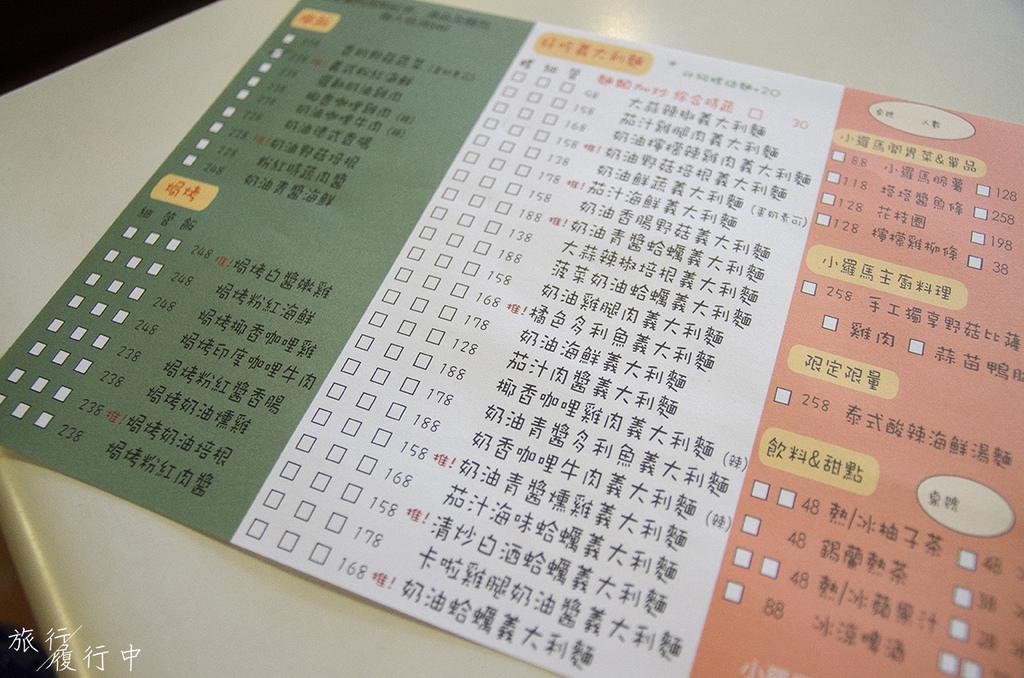 燉飯
義式粉紅海鮮
奶油野菇培根
推!
粉紅時蔬肉醬
228
248 奶油青醬海鮮
焗烤
細 管 飯
248 推! 焗烤白醬嫩雞
248 焗烤粉紅海鮮
248 焗烤椰香咖哩雞
248 焗烤印度咖哩牛肉
238 焗烤粉紅醬香腸
238 焗烤奶油燻雞
238 推! 焗烤奶油培根
238 焗烤粉紅肉醬
好吃義大利麵
麵類加炒 綜合時蔬 30
細 管
98 大蒜辣椒義大利麵
158 茄汁雞腿肉義大利麵
168 奶油檸檬辣雞肉義大利麵
158 推! 奶油野菇培根義大利麵
138 奶油鮮蔬義大利麵 (蛋奶素可)
178 推! 茄汁海鮮義大利麵
158 奶油香腸野菇義大利麵
188 推! 奶油青醬蛤蠣義大利麵
138 大蒜辣椒培根義大利麵
188 菠菜奶油蛤蠣義大利麵
158 奶油雞腿肉義大利麵
168 推! 橘色多利魚義大利麵
178 奶油海鮮義大利麵
128 茄汁肉醬義大利麵
188 椰香咖哩雞肉義大利麵 (辣)
178 奶油青醬多利魚義大利麵
188 奶香咖哩牛肉義大利麵 (辣)
158 推! 奶油青醬燻雞義大利麵
168 茄汁海味蛤蠣義大利麵
158 推! 清炒白酒蛤蠣義大利麵
178 卡啦雞腿奶油醬義大利麵
168 推! 奶油蛤蠣義大利麵
桌號 人數
小羅馬開胃菜&單品
88 小羅馬脆薯 128
118 塔塔醬魚條 258
128 花枝圈 198
128 檸檬雞柳條 38
小羅馬主廚料理
258 手工獨享野菇比薩
雞肉 蒜苗鴨
限定限量
258 泰式酸辣海鮮湯麵
飲料&甜點
桌號
48 熱/冰柚子茶 48
48 錫蘭熱茶 38
48 熱/冰蘋果汁 28
88 冰涼啤酒
旅行履行中